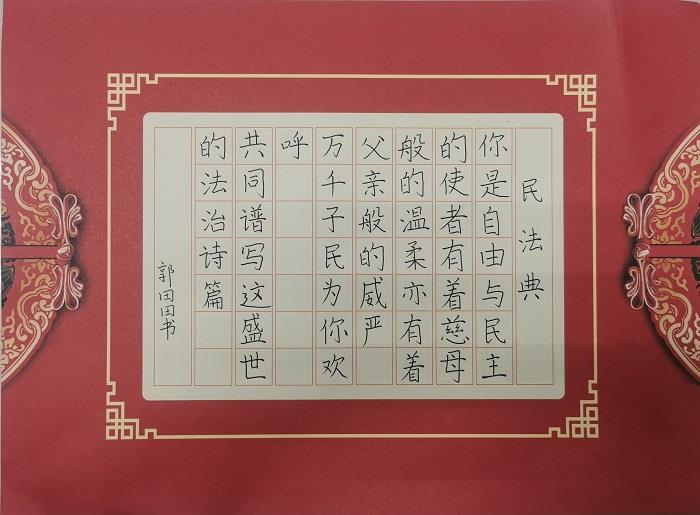 民法典
你是自由与民主
的使者有着慈母
般的温柔亦有着
父亲般的威严
万千子民为你欢
呼
共同谱写这盛世
的法治诗篇
郭田田书